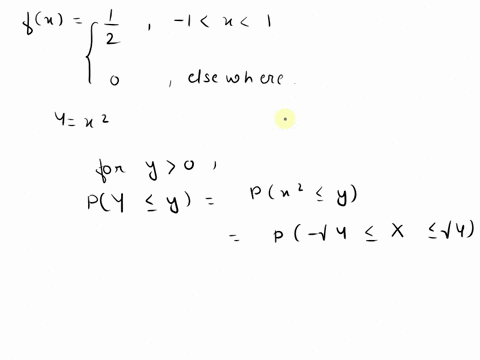 f(x) = { 1/2 , -1 < x < 1
0 , elsewhere.
Y = x²
for y > 0 ,
P(Y ≤ y) = P(x² ≤ y)
= P(-√y ≤ X ≤ √y)